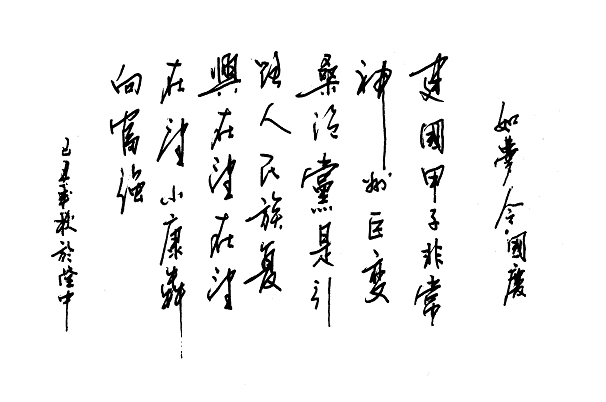 如夢令國慶
建國甲子非常
神州巨變
桑滄黨是引
路人民族复
興在望在望
在望小康奔
向富强
己丑秋於隆中